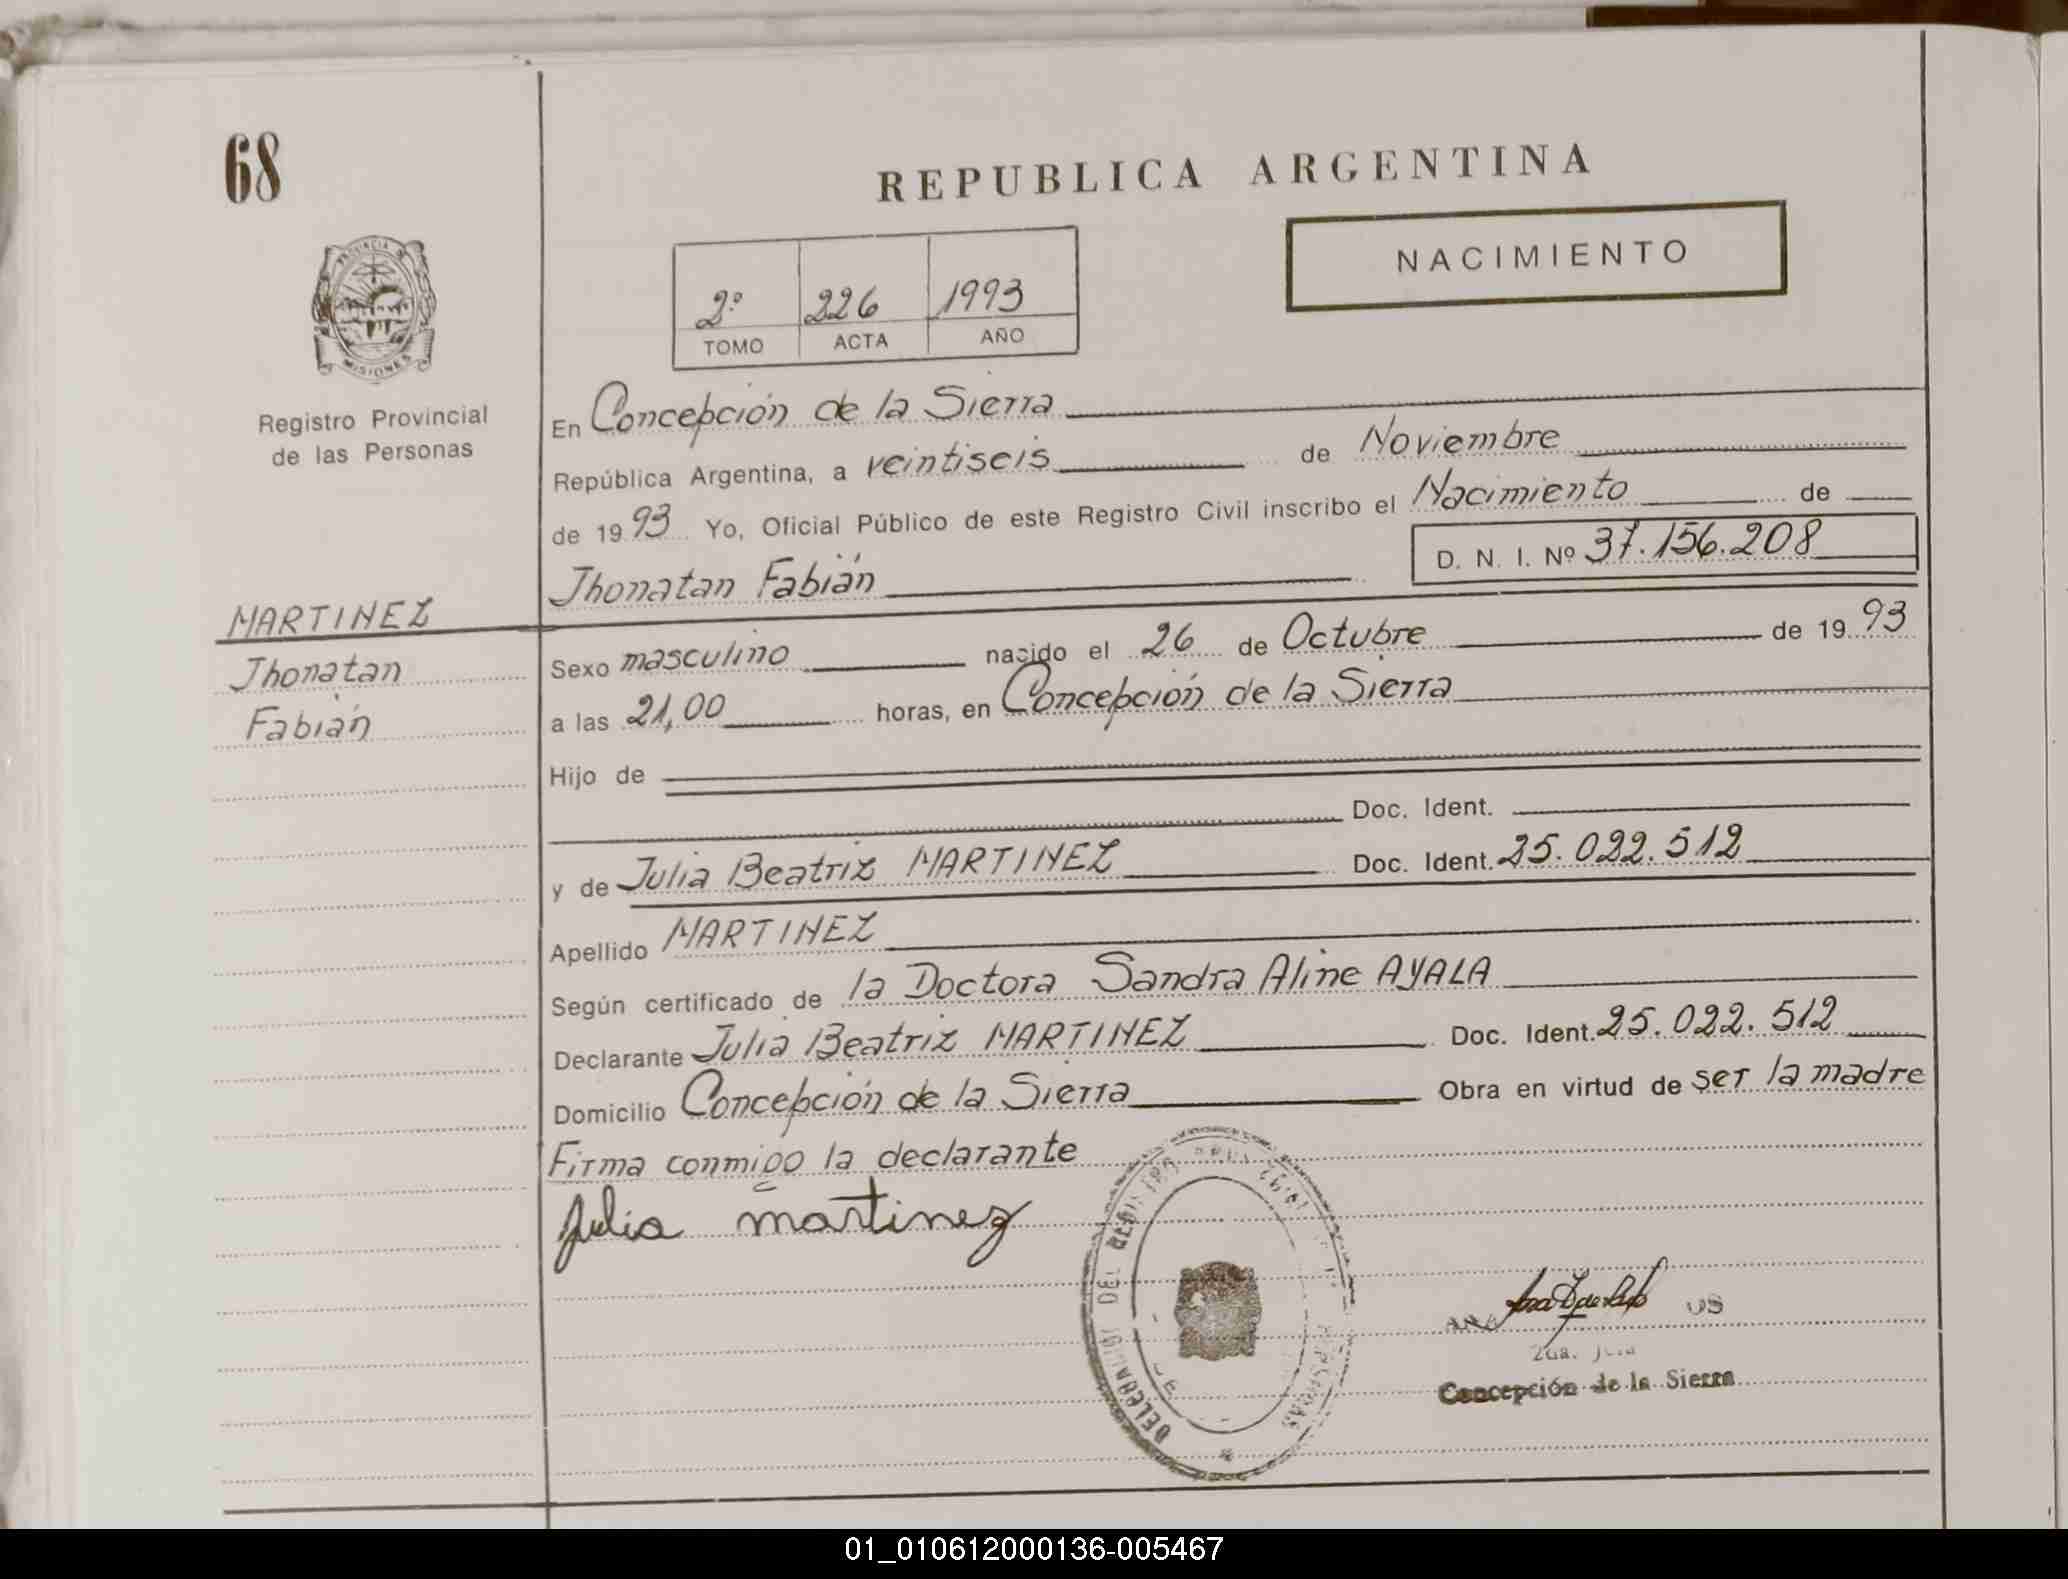 68
REPUBLICA ARGENTINA
NACIMIENTO
2º 226 1993
TOMO ACTA AÑO
PROVINCIA DE MISIONES
Registro Provincial
de las Personas
En Concepción de la Sierra
República Argentina, a veintiseis de Noviembre
de 1993 Yo, Oficial Público de este Registro Civil inscribo el Nacimiento de
D. N. I. Nº 37.156.208
Jhonatan Fabián
MARTINEZ
Jhonatan
Fabián
Sexo masculino nacido el 26 de Octubre de 1993
a las 21,00 horas, en Concepción de la Sierra
Hijo de
Doc. Ident.
y de Julia Beatriz MARTINEZ Doc. Ident. 25.022.512
Apellido MARTINEZ
Según certificado de la Doctora Sandra Aline AYALA
Declarante Julia Beatriz MARTINEZ Doc. Ident. 25.022.512
Domicilio Concepción de la Sierra Obra en virtud de ser la madre
Firma conmigo la declarante
Julia martinez
DEL REGISTRO
ANA
Concepción de la Sierra
01_010612000136-005467